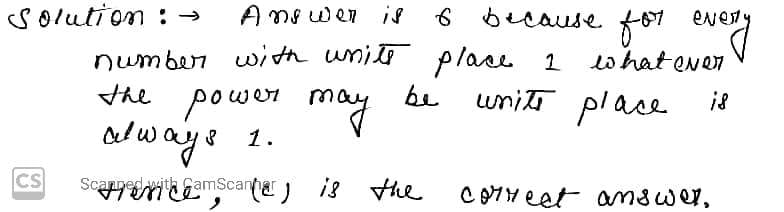 Solution : → Answer is 6 because for every
number with units place 1 whatever
the power may be units place is
always 1.
CS Scanned with CamScanner
Hence, (c) is the correct answer.